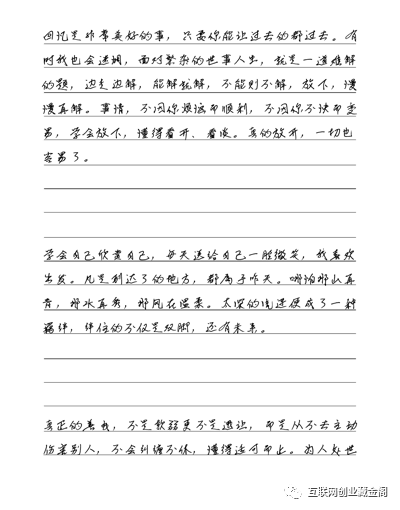 回忆是非常美好的事，只要你能让过去的都过去。有
时我也会迷惘，面对繁杂的世事人生，就是一道难解
的题，边走边解，能解就解，不能则不解，放下，慢
慢真解。事情，不因你烦恼而顺利，不因你不快而变
易，学会放下，懂得看开、看淡。真的放开，一切也
容易了。
学会自己欣赏自己，每天送给自己一脸微笑，我喜欢
出发。凡是到达了的地方，都属于昨天。哪怕那山再
青，那水再秀，那风在温柔。太深的流连便成了一种
羁绊，绊住的不仅是双脚，还有未来。
真正的善良，不是软弱更不是退让，而是从不去主动
伤害别人，不会纠缠不休，懂得适可而止。为人处世
互联网创业藏金阁